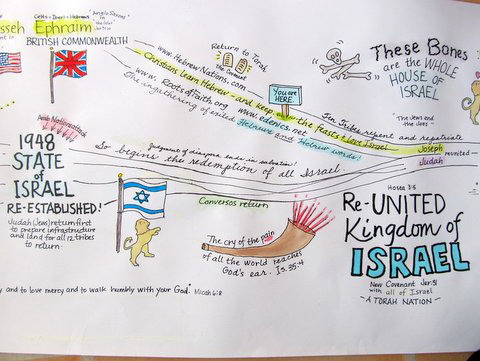 sseh Ephraim
Celts = Iberi = Hebrews
"Anglo Saxons"
BRITISH COMMONWEALTH
www.Hebrew-Nations.com
Return to Torah
the Covenant
Christians learn Hebrew - and keep the feasts & love Israel
www.RootsofFaith.org
www.edenics.net
The ingathering of united Hebrews and Hebrew words!
You are
HERE
These Bones
are the WHOLE
HOUSE OF
ISRAEL
"The Jews and
the Joes"
Ten Tribes repent and repatriate
Joseph
Judah
reunited
Arab Nations attack
1948
STATE
of
ISRAEL
RE-ESTABLISHED!
Judah (Jews) return first
to prepare infrastructure
and land for all 12 tribes
to return.
Judgment of diaspora ends in salvation!
So begins the redemption of all Israel.
Conversos return
The cry of the pain
of all the world reaches
God's ear. Is. 35:4
Hosea 3:5
Re-UNITED
Kingdom of
ISRAEL
New Covenant Jer. 31
with all of Israel
- A TORAH NATION -
y and to love mercy and to walk humbly with your God." Micah 6:8